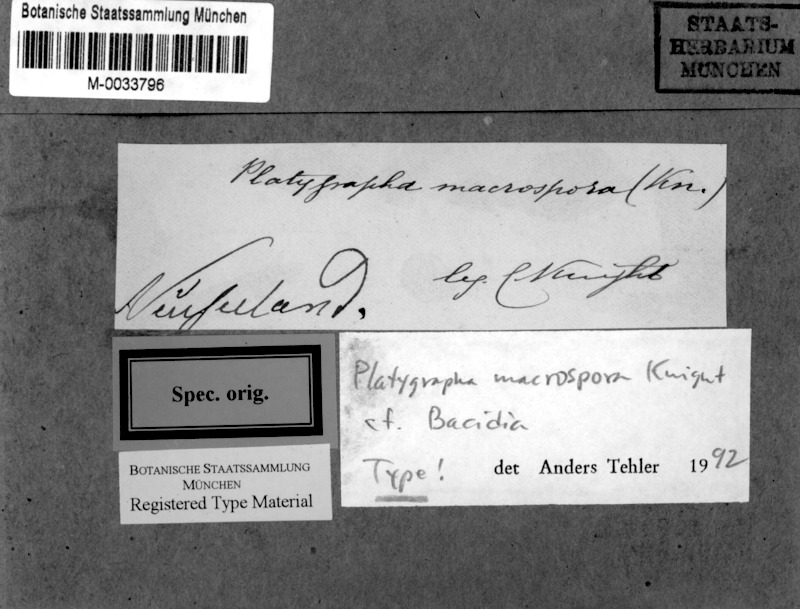 Botanische Staatssammlung München
M-0033796
STAATS-
HERBARIUM
MÜNCHEN
Platygrapha macrospora (Kn.)
Neuseeland.
leg. C Knight
Spec. orig.
Platygrapha macrospora Knight
cf. Bacidia
Type! det Anders Tehler 1992
BOTANISCHE STAATSSAMMLUNG
MÜNCHEN
Registered Type Material